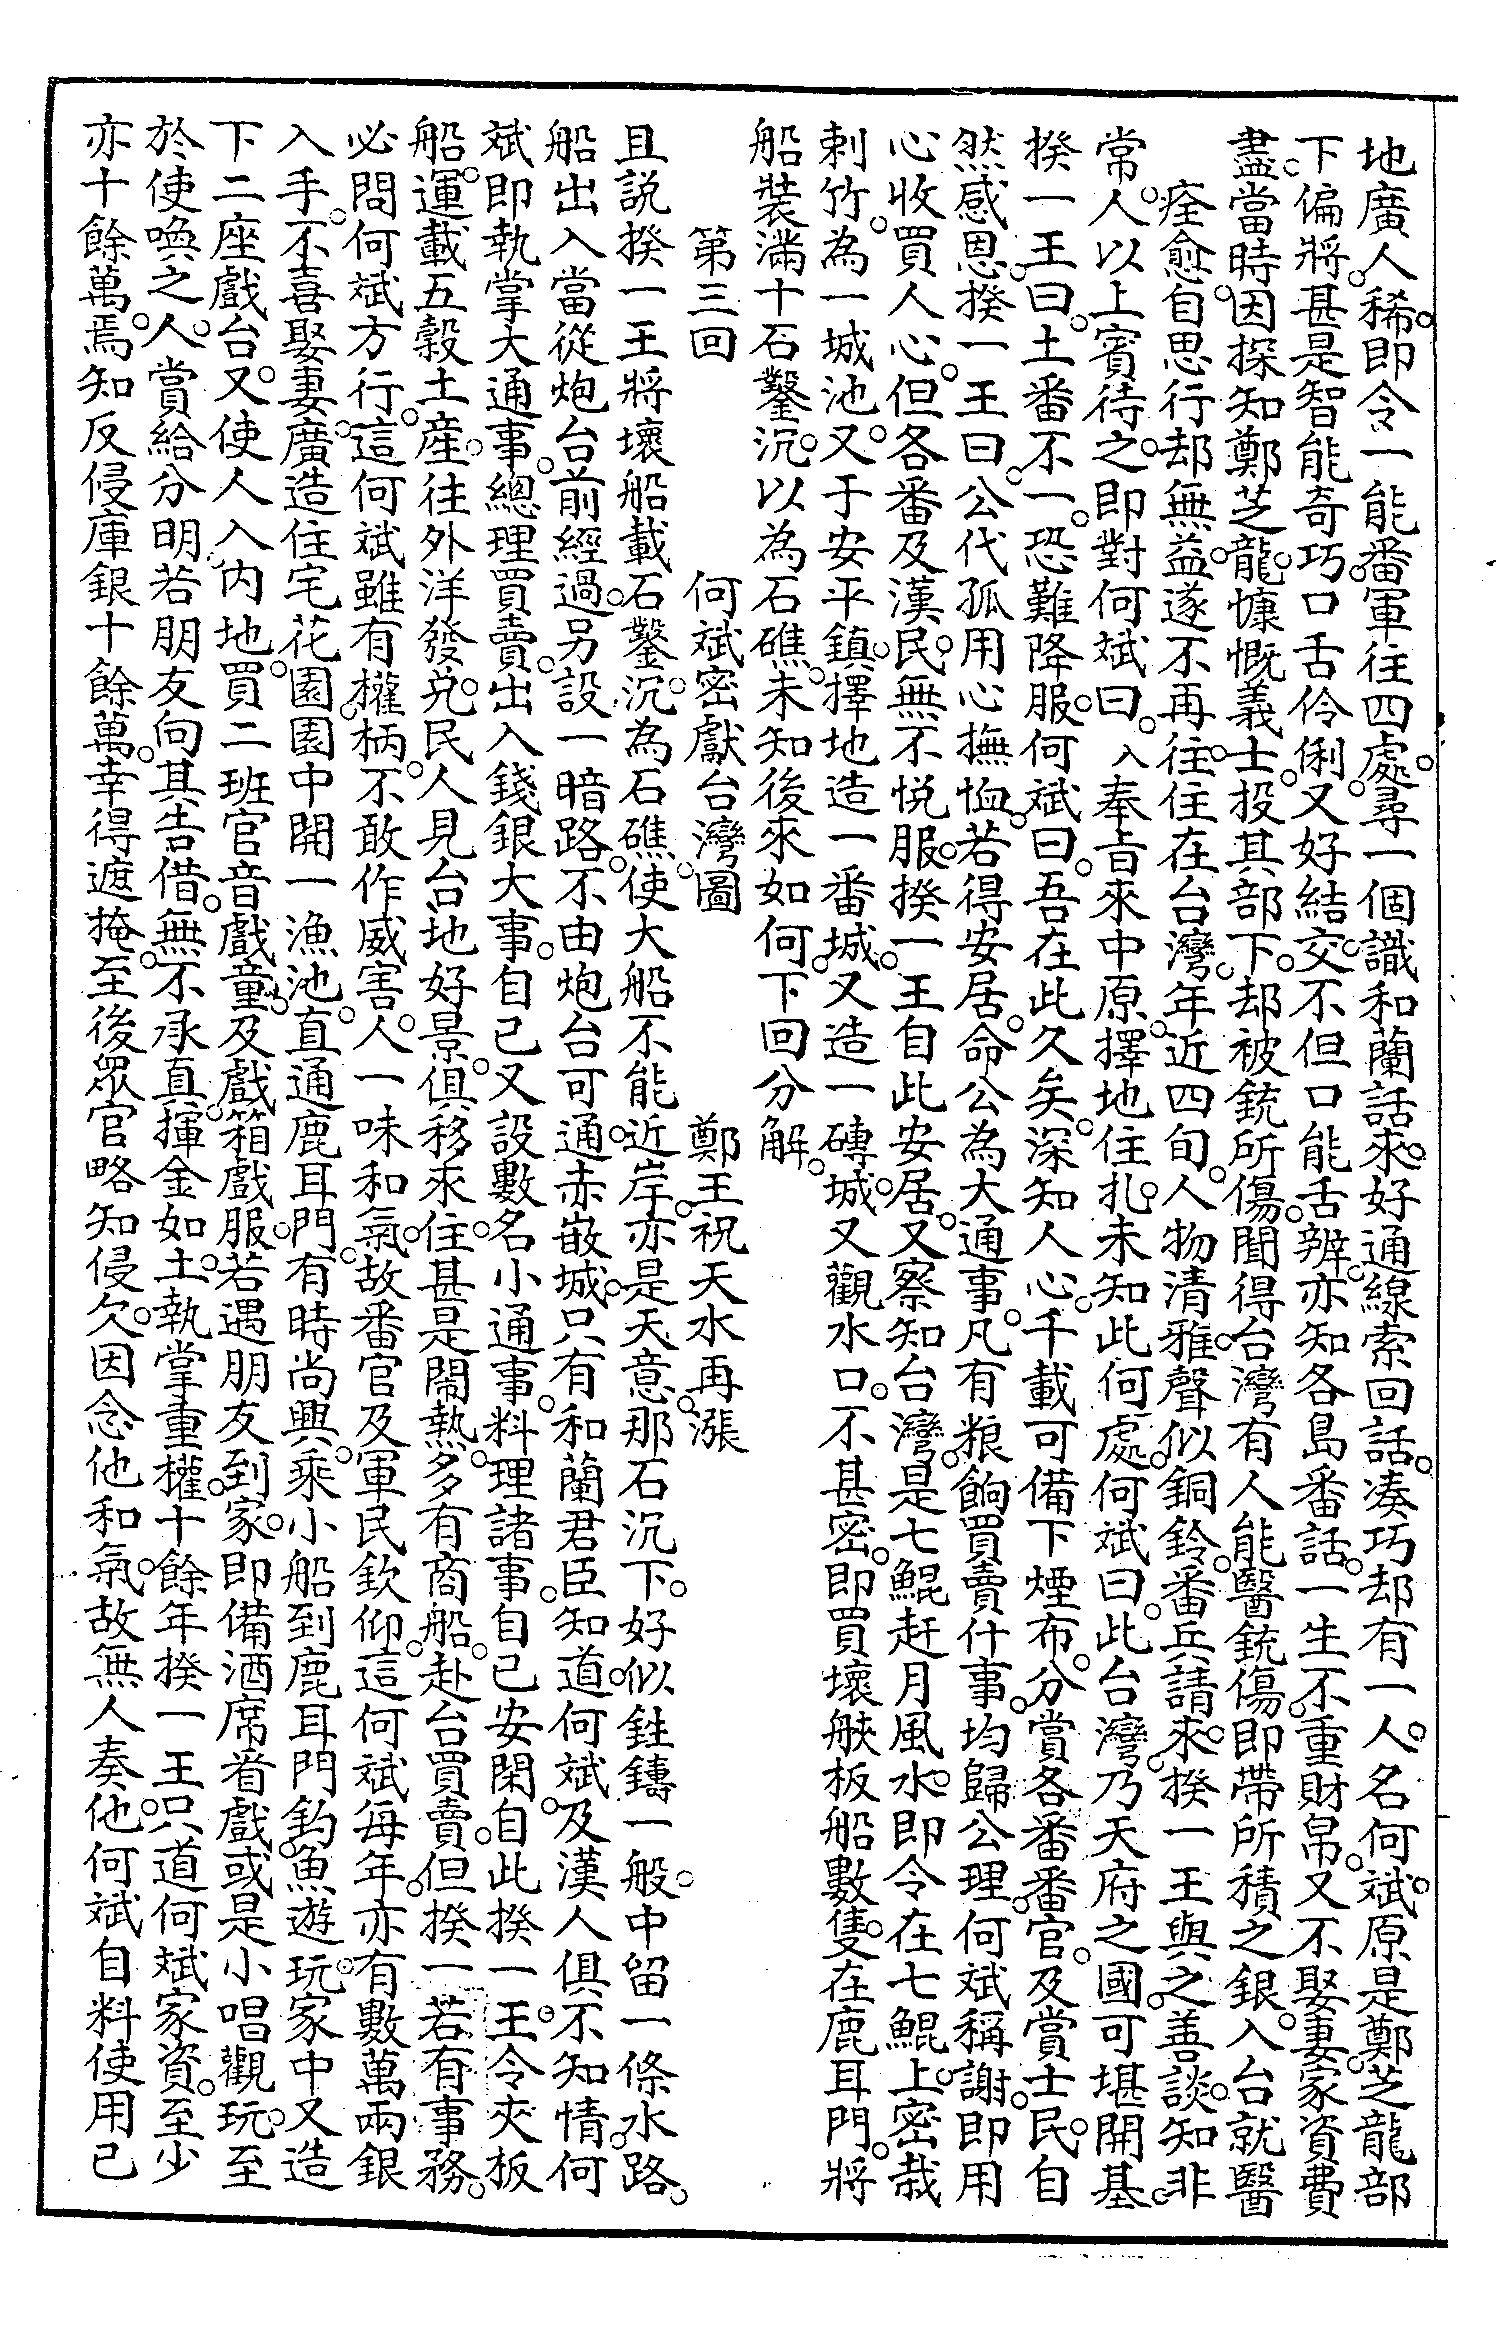 地廣人稀。即令一能番軍往四處。尋一個識和蘭話來。好通線索回話。湊巧却有一人。名何斌。原是鄭芝龍部
下偏將。甚是智能奇巧。口舌伶俐。又好結交。不但口能舌辨。亦知各島番話。一生不重財帛。又不娶妻。家資費
盡。當時因探知鄭芝龍。慷慨義士。投其部下。却被銃所傷。聞得台灣有人能醫銃傷。即帶所積之銀。入台就醫
痊愈。自思行却無益。遂不再往。住在台灣。年近四旬。人物清雅。聲似銅鈴。番兵請來。揆一王與之善談。知非
常人。以上賓待之。即對何斌曰。入奉旨來中原。擇地住扎。未知此何處。何斌曰。此台灣。乃天府之國。可堪開基。
揆一王曰。土番不一。恐難降服。何斌曰。吾在此久矣。深知人心。千載可備下煙布。分賞各番番官。及賞士民。自
然感恩。揆一王曰。公代孤用心撫恤。若得安居。命公為大通事。凡有粮餉買賣什事。均歸公理。何斌稱謝。即用
心收買人心。但各番及漢民。無不悅服。揆一王自此安居。又察知台灣。是七鯤赶月風水。即令在七鯤。上密栽
刺竹。為一城池。又于安平鎮。擇地造一番城。又造一磚城。又觀水口。不甚密。即買壞舨板船數隻。在鹿耳門。將
船裝滿十石鑿沉。以為石礁。未知後來如何。下回分解。
第三回　何斌密獻台灣圖　鄭王祝天水再漲
且說揆一王將壞船載石鑿沉。為石礁。使大船不能近岸。亦是天意。那石沉下。好似鉎鑄一般。中留一條水路。
船出入當從炮台前經過。另設一暗路。不由炮台可通。赤嵌城。只有和蘭君臣知道。何斌。及漢人俱不知情。何
斌即執掌大通事。總理買賣。出入錢銀大事。自己又設數名小通事。料理諸事。自己安閑。自此揆一王。令夾板
船。運載五穀土產。往外洋發兌。民人見台地好景。俱移來住。甚是鬧熱。多有商船。赴台買賣。但揆一若有事務。
必問何斌方行。這何斌雖有權柄。不敢作威害人。一味和氣。故番官及軍民欽仰。這何斌每年。亦有數萬兩銀
入手。不喜娶妻。廣造住宅花園。園中開一漁池。直通鹿耳門。有時尚興。乘小船到鹿耳門釣魚遊玩。家中又造
下二座戲台。又使人入內地。買二班官音戲童。及戲箱戲服。若遇朋友到家。即備酒席看戲。或是小唱觀玩。至
於使喚之人。賞給分明。若朋友向其告借。無不承真。揮金如土。執掌重權。十餘年揆一王。只道何斌家資。至少
亦十餘萬。焉知反侵庫銀十餘萬。幸得遮掩。至後眾官略知侵欠。因念他和氣。故無人奏他。何斌自料使用已